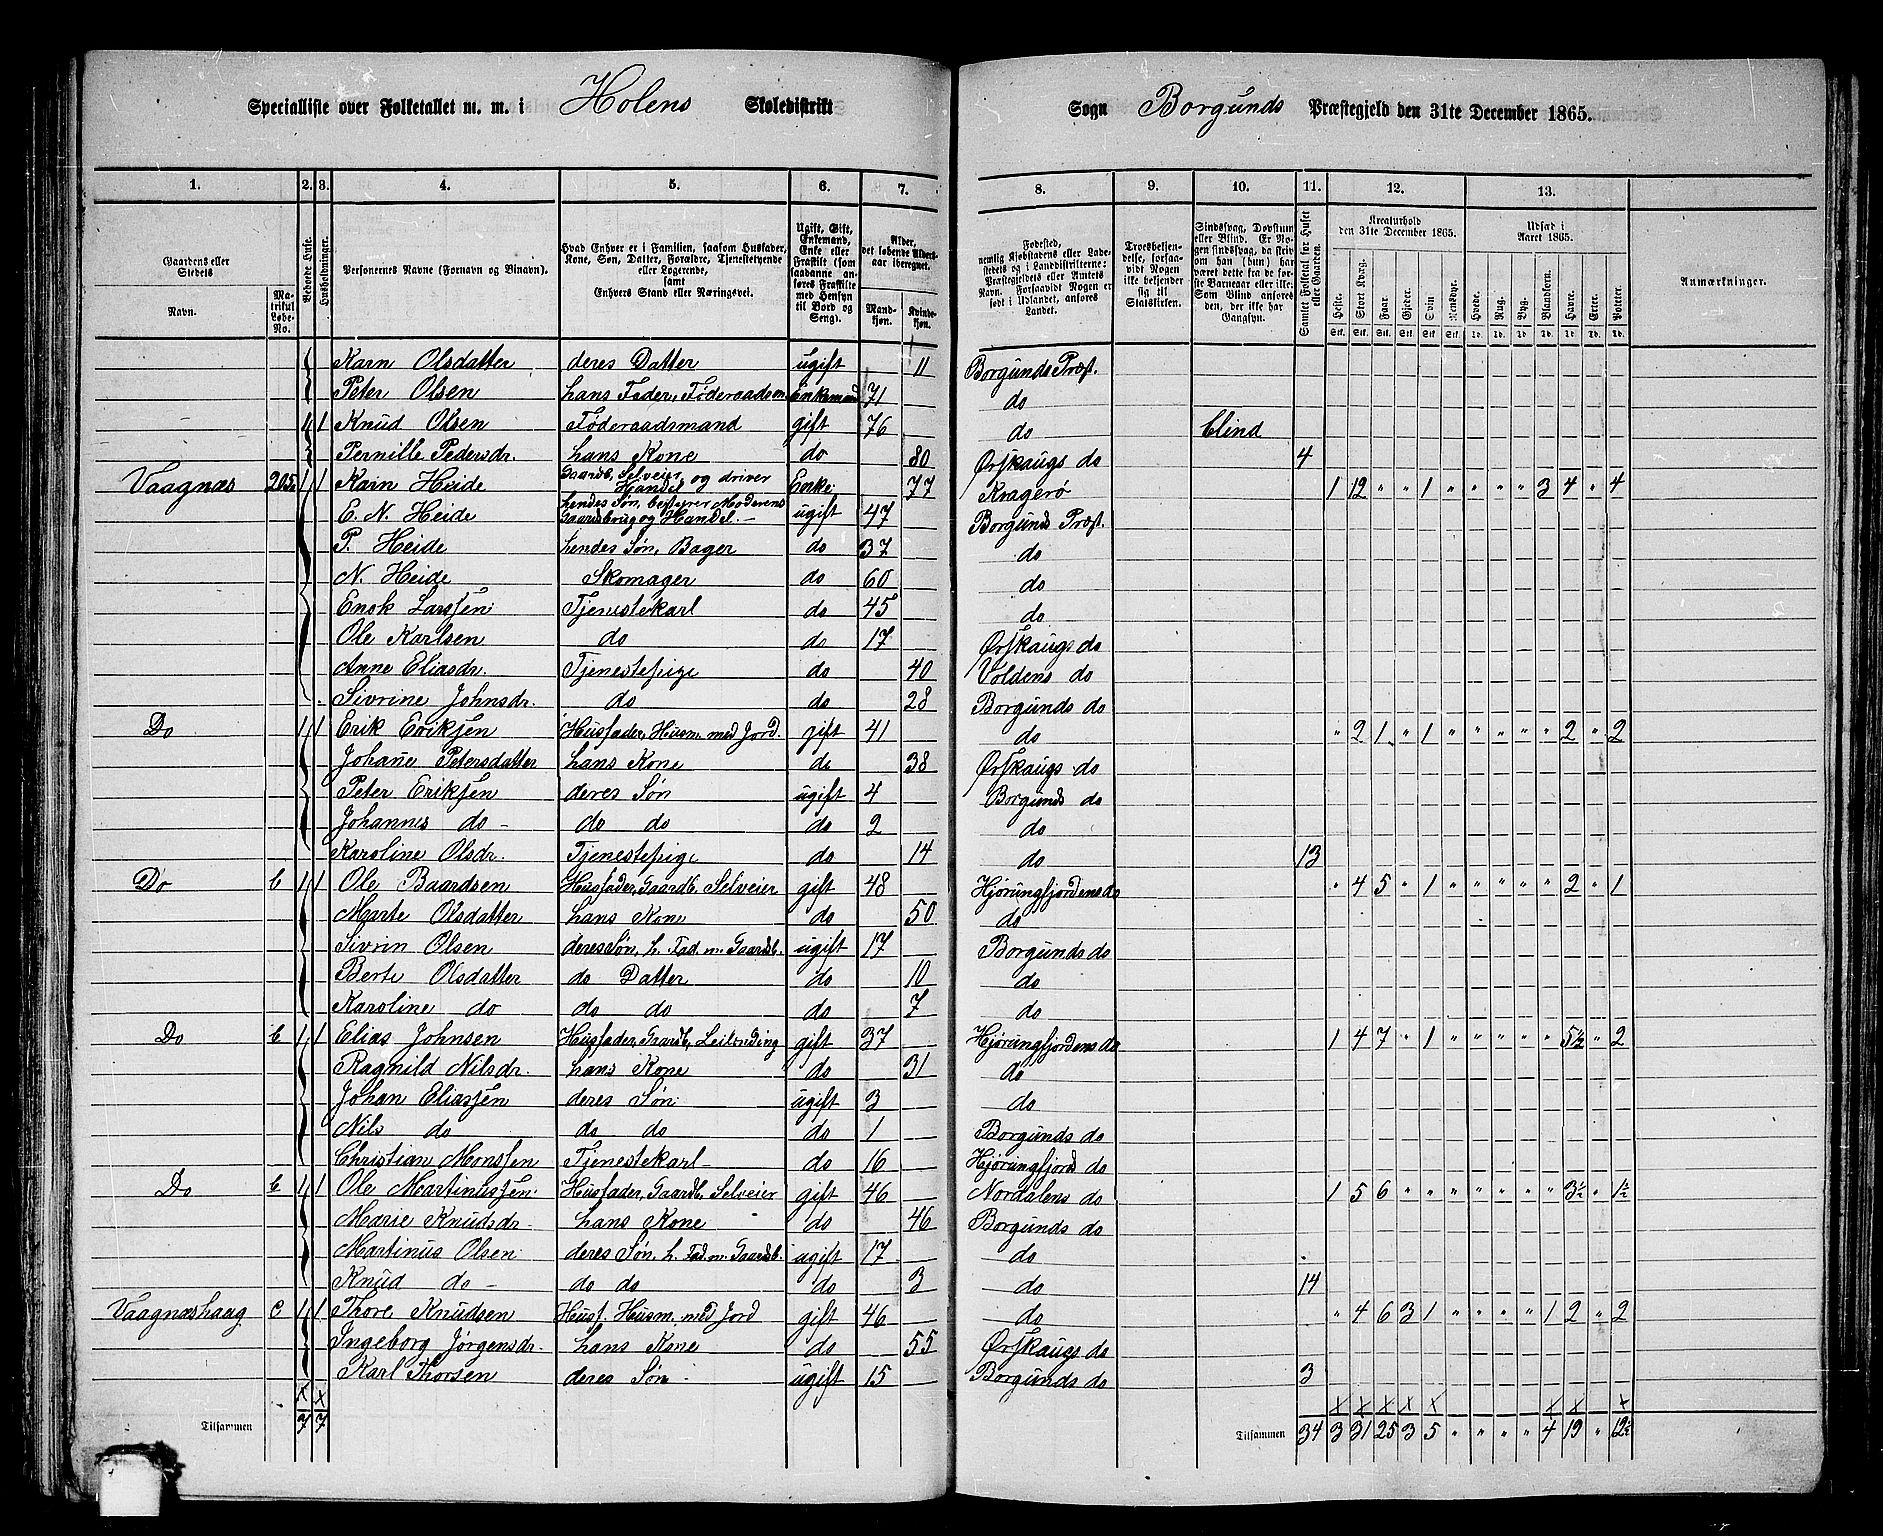 Specialliste over Folketallet m. m. i Holens Skoledistrikt Sogn Borgunds Præstegjeld den 31te December 1865.
1. 2. 3. 4. 5. 6. 7. 8. 9. 10. 11. 12. 13.
Gaardens eller Stedets
Navn. Matrikul Løbe-No.
Beboede Huse.
Husholdninger.
Personernes Navne (Fornavn og Binavn).
Hvad Enhver er i Familien, saasom Husfader, Kone, Søn, Datter, Forældre, Tjenestetyende eller Logerende, samt Enhvers Stand eller Næringsvei.
Ugift, Gift, Enkemand, Enke eller Fraskilt (som saadanne anføres Fraskilte med Hensyn til Bord og Seng).
Alder, det løbende Alders-aar iberegnet.
Mandkjøn. Kvindekjøn.
Fødested, nemlig Kjøbstadens eller Ladestedets og i Landdistrikterne: Præstegjeldets eller Amtets Navn. Forsaavidt Nogen er født i Udlandet, anføres Landet.
Troesbekjendelse, forsaavidt Nogen ikke bekjender sig til Statskirken.
Sindssvag, Døvstum eller Blind. Er Nogen sindssvag, da skrives om han (hun) har været dette fra de første Barneaar eller ikke. Som Blind ansøres den, der ikke har Gangsyn.
Samlet Folketal for Huset eller Gaarden.
Kreaturhold den 31te December 1865.
Heste. Stort Kvæg. Faar. Gjeder. Svin Rensdyr.
Udsæd i Aaret 1865.
Hvede. Rug. Byg. Blandkorn. Havre. Erter. Poteter.
Anmærkninger.
Karn Olsdatter deres Datter ugift 11 Borgunds Præst.
Peter Olsen hans Fader, Føderaadsm. Enkemand 71 do
1 1 Knud Olsen Føderaadsmand gift 76 do blind
Pernille Pedersdr. hans Kone do 80 Ørskaugs do 4
Vaagnæs 205 1 1 Karn Heide Gaardb, Selveier, og driver Handel Enke 77 Kragerø 1 12 " " 1 " " " " 3 4 " 4
E. N. Heide hendes Søn, bestyrer Moderens Gaardsbrug og Handel. ugift 47 Borgunds Præst.
P. Heide hendes Søn, Bager do 37 do
N. Heide Skomager do 60 do
Enok Larssen Tjenestekarl do 45 do
Ole Karlsen do do 17 Ørskaugs do
Anne Eliasdr. Tjenestepige do 40 Voldens do
Sivrine Johnsdr. do do 28 Borgunds do
Do 1 1 Erik Eriksen Husfader, Husm. med Jord. gift 41 do " 2 1 " 1 " " " " " 2 " 2
Johane Petersdatter hans Kone do 38 Ørskaugs do
Peter Eriksen deres Søn ugift 4 Borgunds do
Johannes do do do do 2 do
Karoline Olsdr. Tjenestepige do 14 do 13
Do b 1 1 Ole Baardsen Husfader, Gaardb, Selveier gift 48 Hjørungfjordens do " 4 5 " 1 " " " " " 2 " 1
Marte Olsdatter hans Kone do 50 do
Sivrin Olsen deres Søn, h. Fad. m. Gaardb. ugift 17 Borgunds do
Berte Olsdatter do Datter do 10 do
Karoline do do do do 7 do
Do b 1 1 Elias Johnsen Husfader, Gaardb, Leilending gift 37 Hjørungfjordens do 1 4 7 " 1 " " " " " 5½ " 2
Ragnild Nilsdr. hans Kone do 31 do
Johan Eliassen deres Søn ugift 3 do
Nils do do do do 1 Borgunds do
Christian Monssen Tjenestekarl do 16 Hjørungfjord do
Do b 1 1 Ole Martinussen Husfader, Gaardb, Selveier gift 46 Nordalens do 1 5 6 " " " " " " " 3½ " 1½
Marie Knudsdr. hans Kone do 46 Borgunds do
Martinus Olsen deres Søn, h. Fad. m. Gaardb. ugift 17 do
Knud do do do do 3 do 14
Vaagnæshaug c 1 1 Thore Knudsen Husf. Husm. med Jord gift 46 do " 4 6 3 1 " " " " 1 2 " 2
Ingeborg Jørgensdr. hans Kone do 55 Ørskaugs do
Karl Thorsen deres Søn ugift 15 Borgunds do 3
x x x x x x x x x x
Tilsammen 7 7 Tilsammen 34 3 31 25 3 5 " " " " 4 19 " 12½